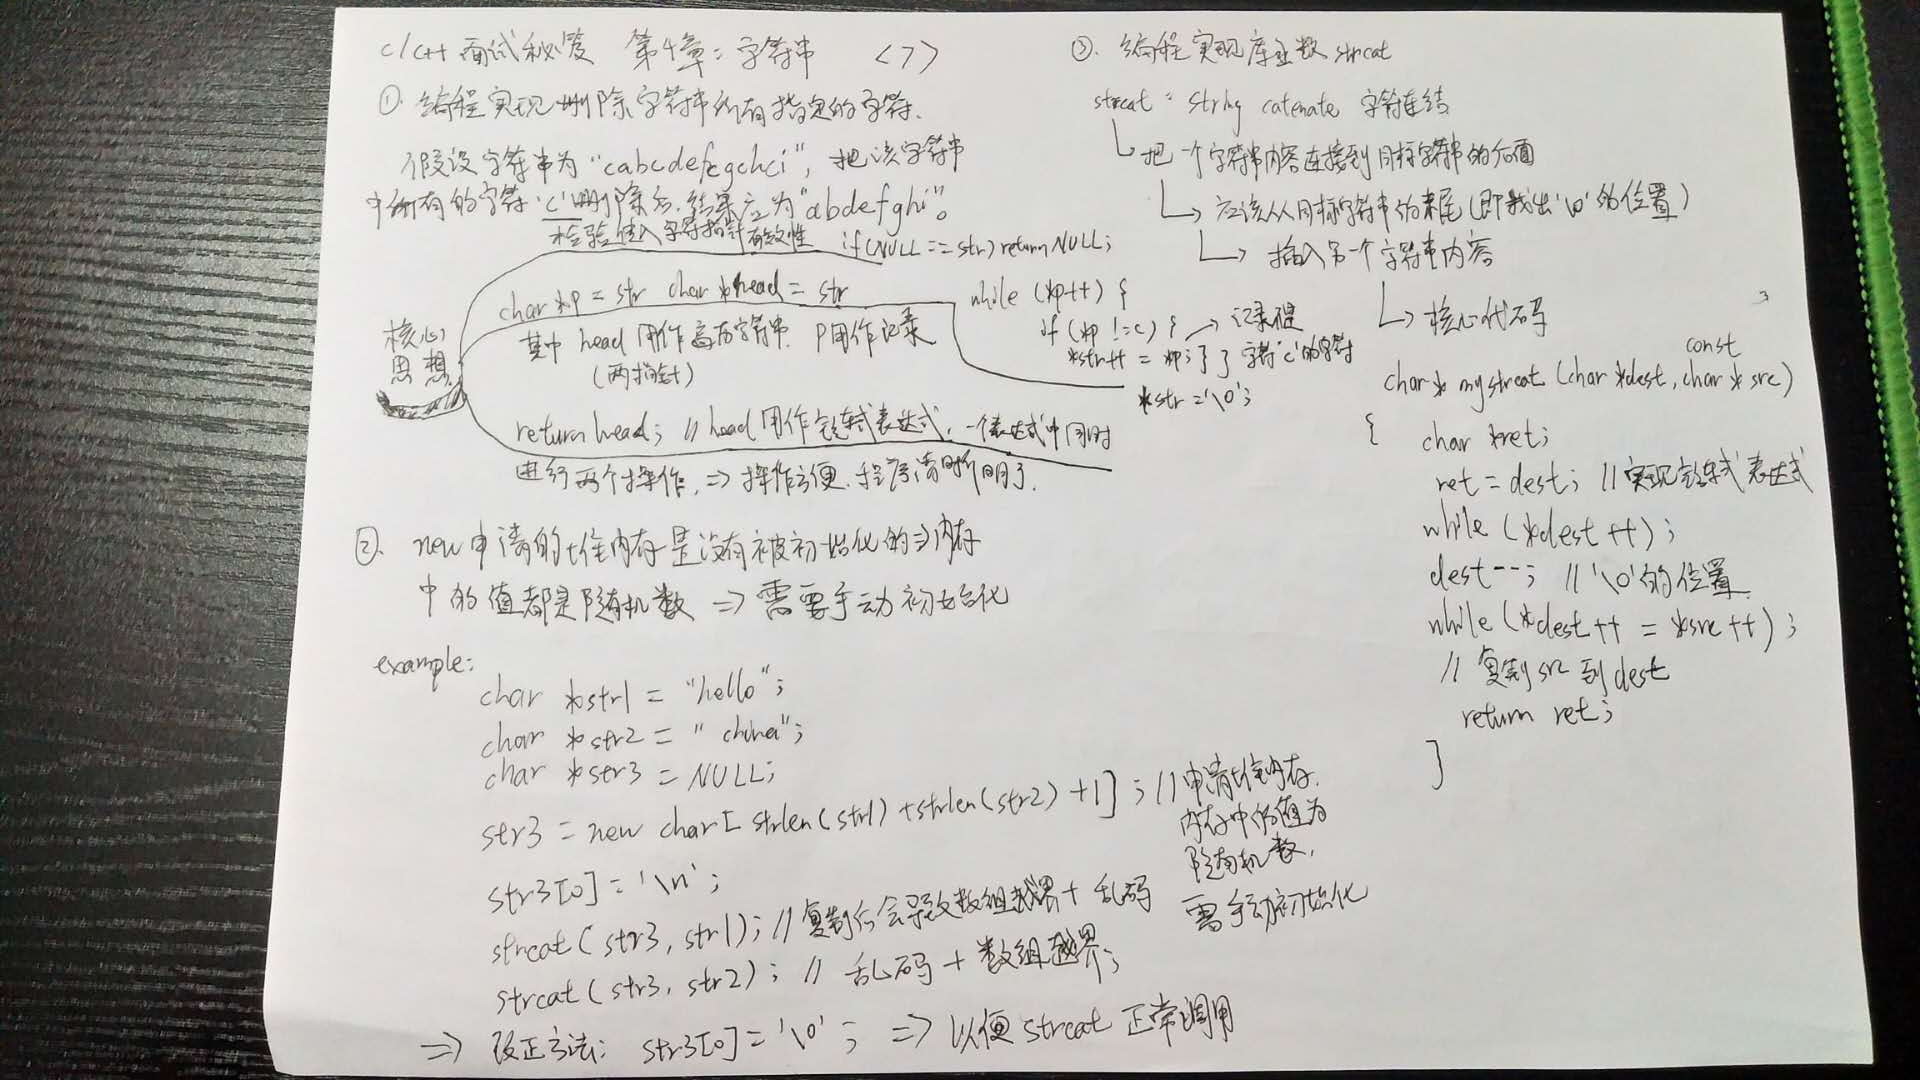 C/C++ 面试秘笈 第4章: 字符串 <7>
①. 编程实现删除字符串所有指定的字符.
假设字符串为"cabcdefcgchci", 把该字符串
中所有的字符'c'删除后, 结果应为"abdefghi"。
检验传入字符指针有效性 if(NULL == str) return NULL;
核心思想
char *p = str char *head = str
其中 head 用作高历字符串. p用作记录
(两指针)
while (*p++) {
if (*p != c) { → 记录非
*str++ = *p; } } 字符'c'的字符
*str = '\0';
return head; // head 用作链式表达式, 一个表达式中同时
进行两个操作, ⇒ 操作方便, 程序清晰明了.
②. new申请的堆内存是没有被初始化的⇒内存
中的值都是随机数 ⇒ 需要手动初始化
example:
char *str1 = "hello";
char *str2 = " china";
char *str3 = NULL;
str3 = new char[ strlen(str1) + strlen(str2) + 1] ; // 申请堆内存.
内存中的值为
随机数,
需手动初始化
str3[0] = '\n';
strcat( str3, str1); // 复制后会导致数组越界 + 乱码
strcat( str3, str2); // 乱码 + 数组越界;
⇒ 改正方法: str3[0] = '\0' ; ⇒ 以便 strcat 正常调用
③. 编程实现库函数 strcat
strcat : string catenate 字符连结
↳ 把一个字符串内容连接到目标字符串的后面
↳ 应该从目标字符串的末尾(即找出'\0'的位置)
↳ 插入另一个字符串内容
↳ 核心代码
const
char* mystrcat (char *dest, char * src)
{
char *ret;
ret = dest; // 实现链式表达式
while (*dest ++);
dest--; // '\0'的位置
while (*dest++ = *src++);
// 复制 src 到 dest
return ret;
}